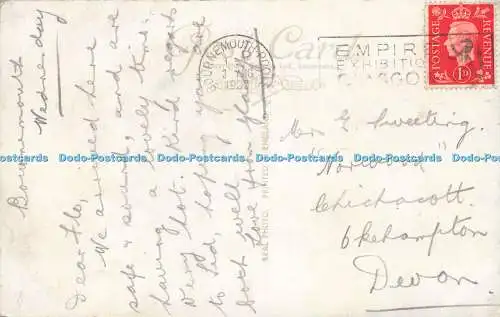 Bournemouth
Wednesday
Dear Flo,
We arrived here
safe & sound, and are
having a lovely time.
Very hot. Kind regards
to Sid, hoping you are
both well
Love from
BOURNEMOUTH-POOLE
1938
EMPIRE
EXHIBITION
GLASGOW
POSTAGE
REVENUE
1D
Post Card
REAL PHOTO. PRINTED IN ENGLAND
Mrs E Sweeting
"Norwood"
Chichacott
Okehampton
Devon.
Dodo-Postcards Dodo-Postcards Dodo-Postcards Dodo-Postcards Dodo-Postcards Dodo-Postcards